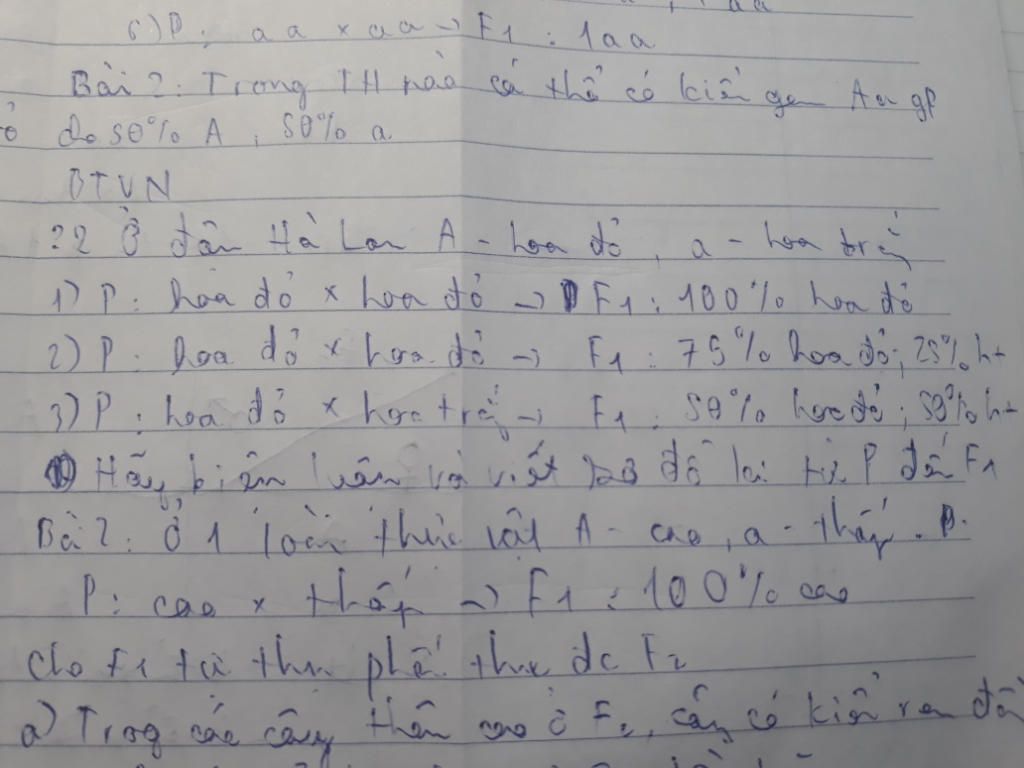 aa
6) P : aa x aa → F1 : 1aa
Bài 2: Trong TH nào cá thể có kiểu gen Aa gp
do 50% A ; 50% a
BTVN
?2 Ở đậu Hà Lan A - hoa đỏ, a - hoa trắng
1) P : hoa đỏ x hoa đỏ → F1 : 100% hoa đỏ
2) P : hoa đỏ x hoa đỏ → F1 : 75% hoa đỏ; 25% ht
3) P : hoa đỏ x hoa trắng → F1 : 50% hoa đỏ; 50% ht
Hãy biện luận và viết sơ đồ lai từ P đến F1
Bài 2: Ở 1 loài thực vật A - cao, a - thấp. P.
P: cao x thấp → F1 : 100% cao
Cho F1 tự thụ phấn thu đc F2
a) Trong các cây thân cao ở F2, cây có kiểu